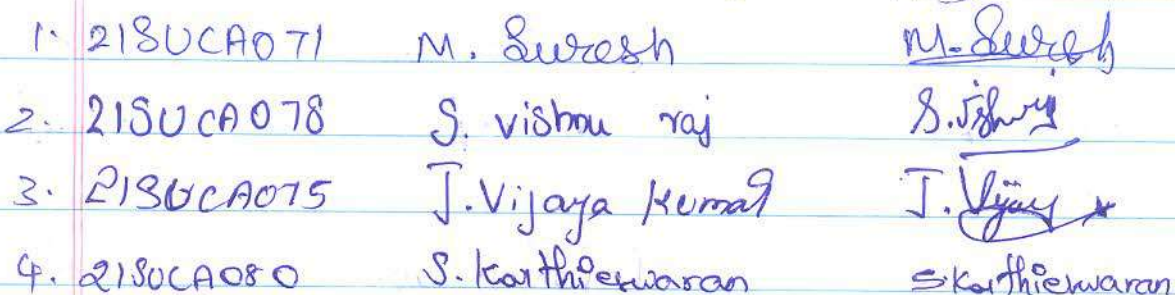 1. 21SUCA071 M. Suresh M. Suresh
2. 21SUCA078 S. vishnu raj S.
3. 21SUCA075 J. Vijaya Kumar J. Vijay
4. 21SUCA080 S. Karthieswaran S Karthieswaran